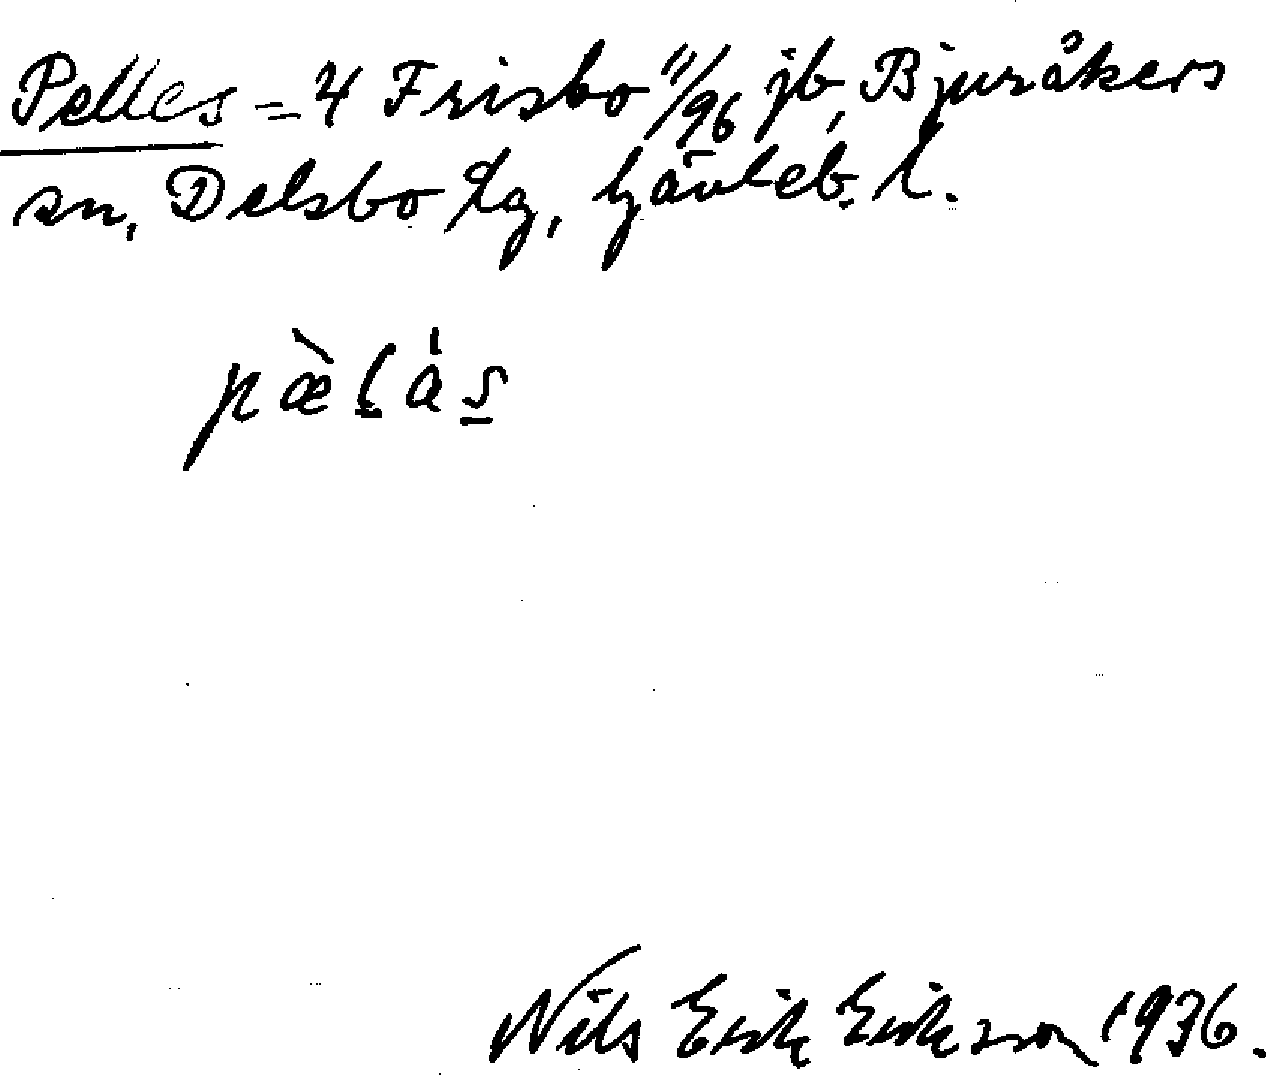 Pelles = 4 Frisbo 11/96 jb, Bjuråkers
sn, Delsbo tg, Gävleb. l.
pæ̀lás
Nils Erik Eriksson 1936.